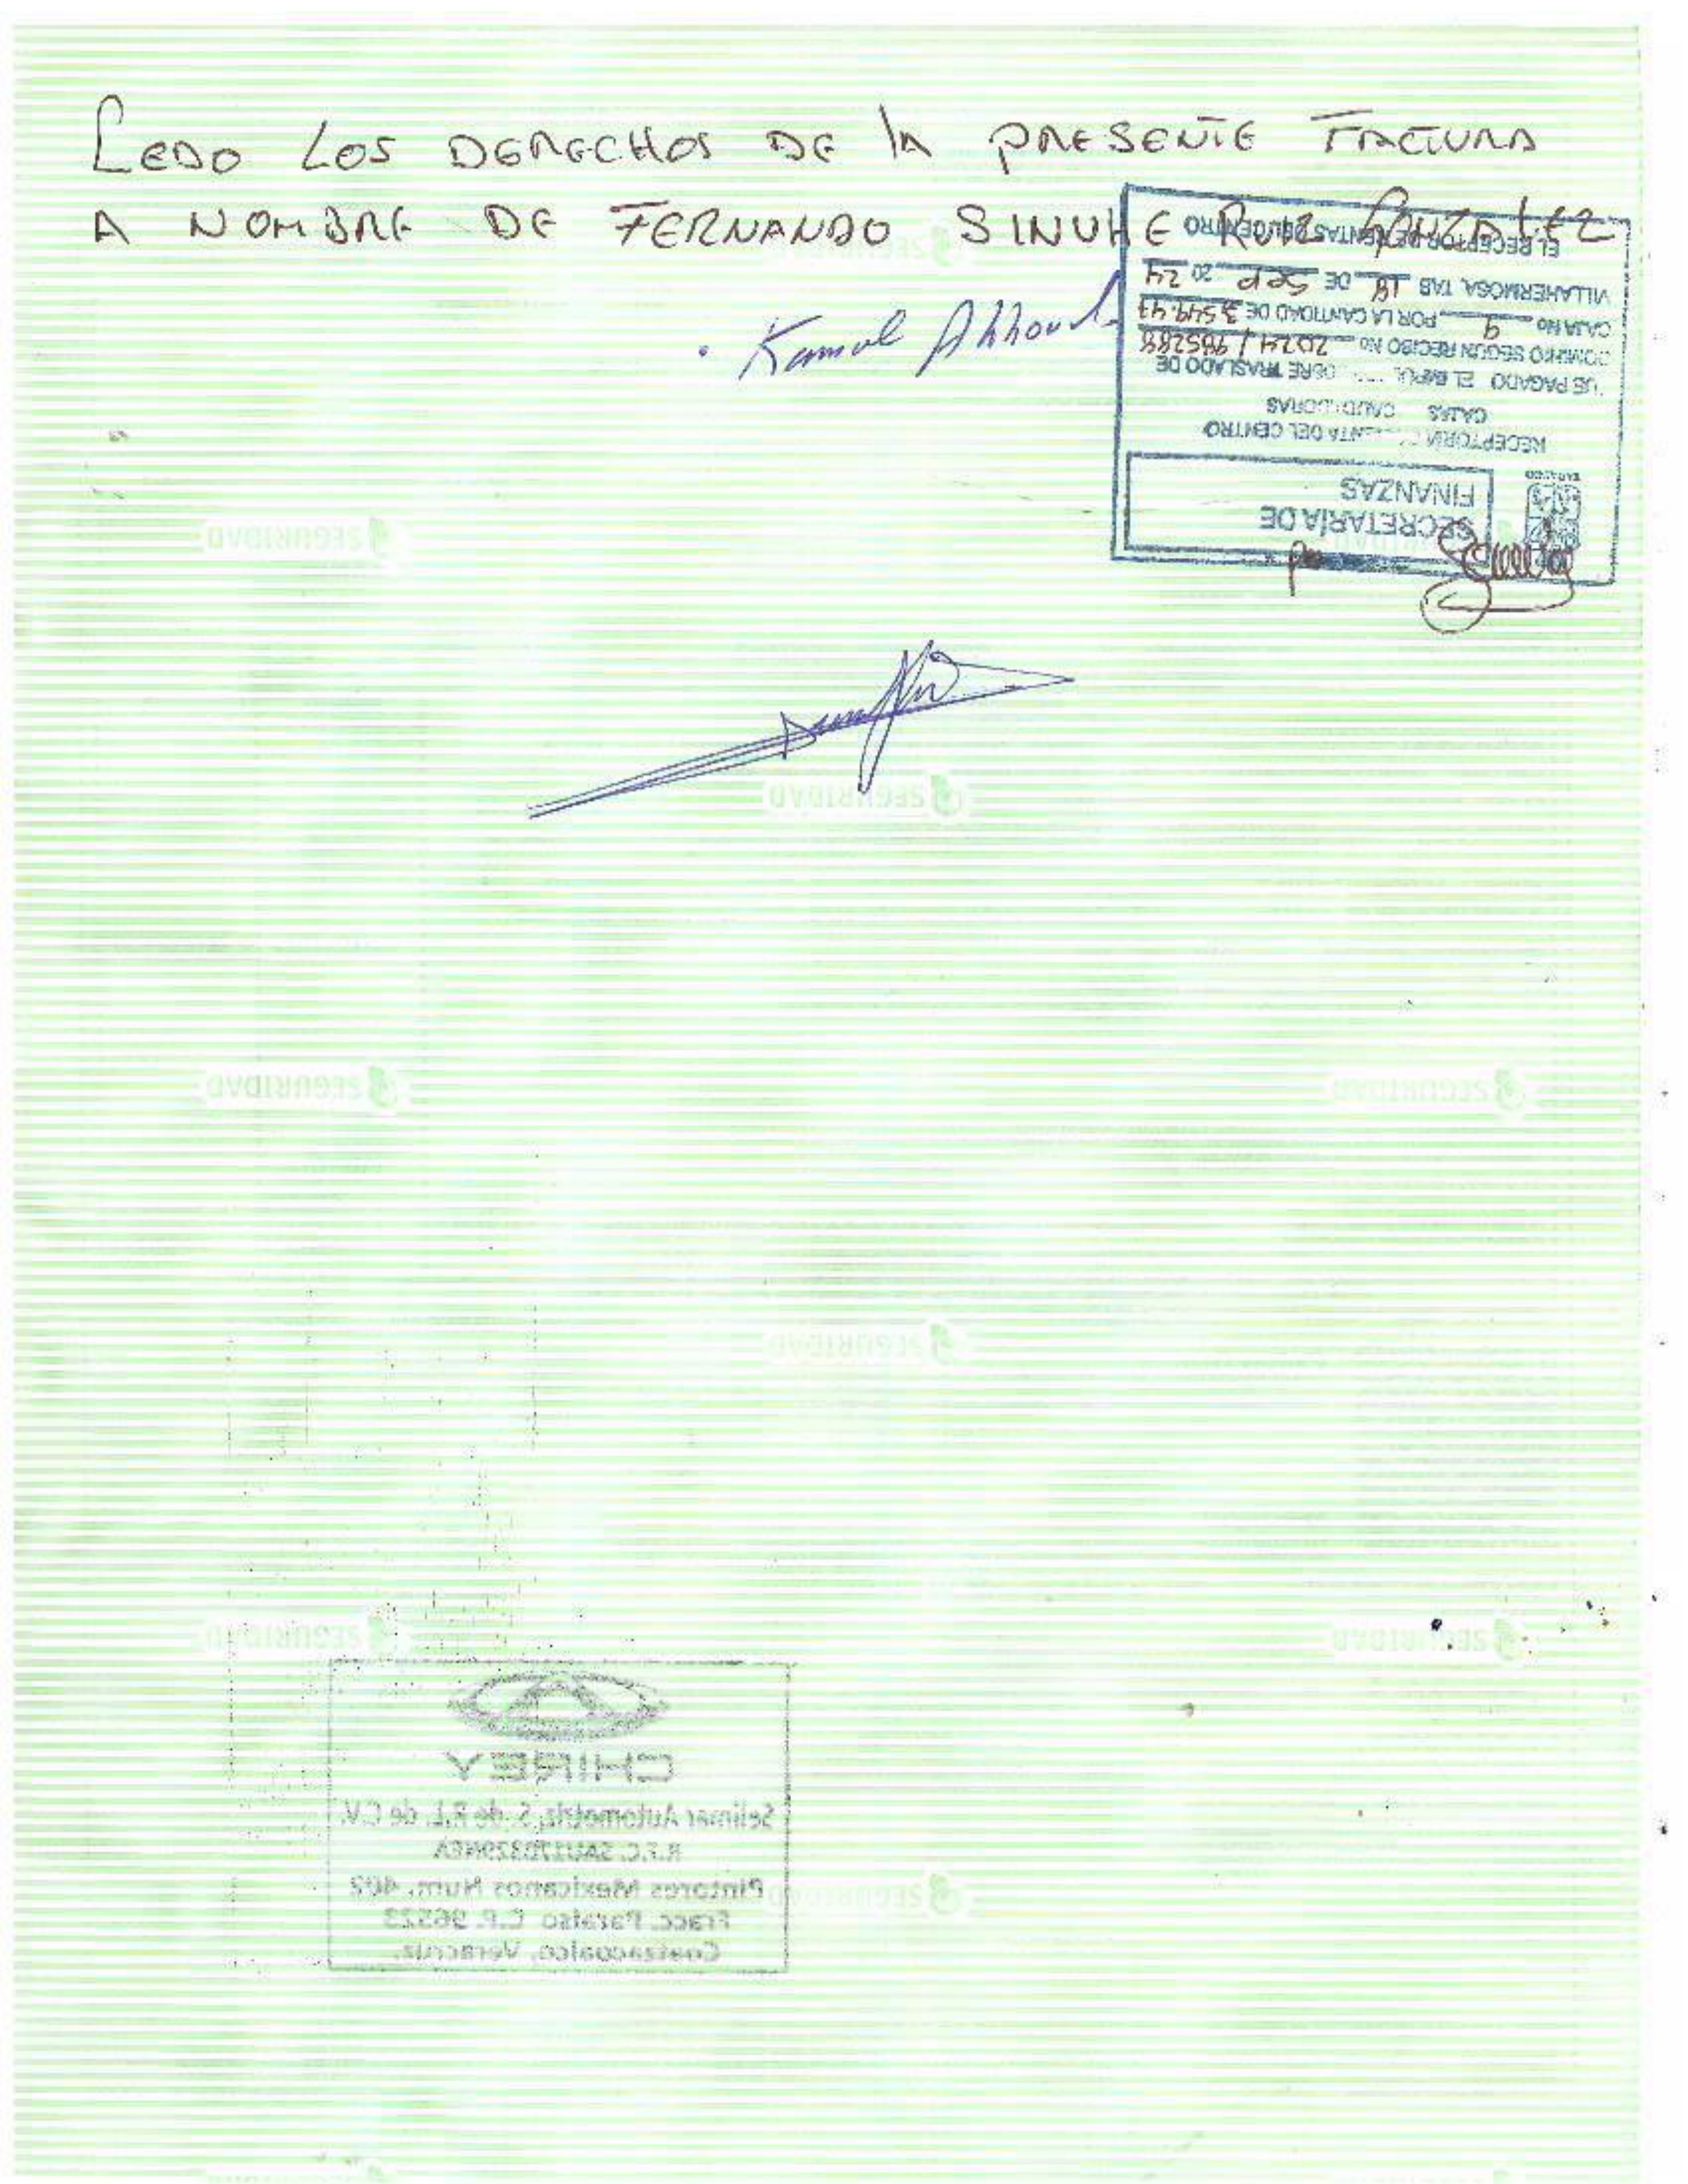 CEDO LOS DERECHOS DE LA PRESENTE FACTURA
A NOMBRE DE FERNANDO SINUHE RUIZ GONZALEZ
Kamal
SECRETARÍA DE
FINANZAS
RECEPTORIA RENTA DEL CENTRO
CAJAS
FUE PAGADO EL TRASLADO DE
DOMINIO SEGUN RECIBO No 2024/985288
CAJA No 9 POR LA CANTIDAD DE 3,549.47
VILLAHERMOSA, TAB 18 DE Sep 20 24
EL RECEPTOR DE RENTAS DEL CENTRO
SEGURIDAD
SEGURIDAD
SEGURIDAD
SEGURIDAD
SEGURIDAD
SEGURIDAD
SEGURIDAD
CHIREY
Selimar Automotriz, S. de R.L. de C.V.
R.F.C.
Pintores Mexicanos Num. 402
Fracc. Paraiso C.P. 96523
Coatzacoalco, Veracruz.
SEGURIDAD